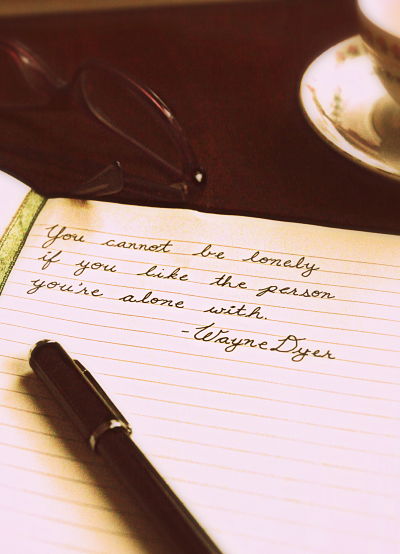 You cannot be lonely
if you like the person
you're alone with.
-Wayne Dyer